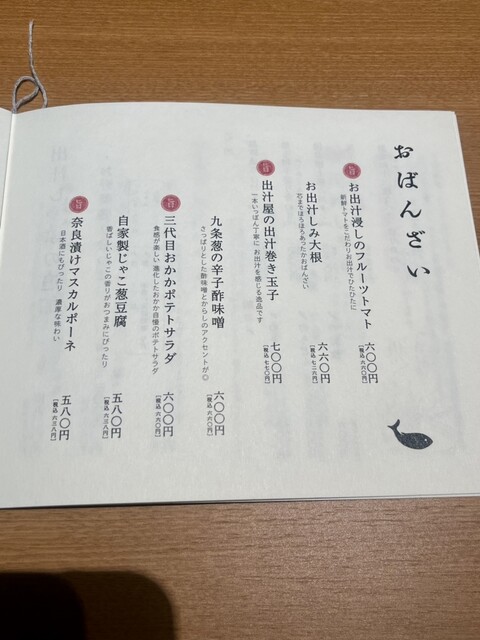 おばんざい
お出汁浸しのフルーツトマト
新鮮トマトをこだわりお出汁でひたひたに
六〇〇円
［税込 六六〇円］
お出汁しみ大根
芯までほろほろあったかおばんざい
六六〇円
［税込 七二六円］
出汁屋の出汁巻き玉子
一本いっぽん丁寧に お出汁を感じる逸品です
七〇〇円
［税込 七七〇円］
九条葱の辛子酢味噌
さっぱりとした酢味噌とからしのアクセントが◎
六〇〇円
［税込 六六〇円］
三代目おかかポテトサラダ
食感が楽しい 進化したおかか自慢のポテトサラダ
六〇〇円
［税込 六六〇円］
自家製じゃこ葱豆腐
香ばしいじゃこの香りがおつまみにぴったり
五八〇円
［税込 六三八円］
奈良漬けマスカルポーネ
日本酒にもぴったり 濃厚な味わい
五八〇円
［税込 六三八円］